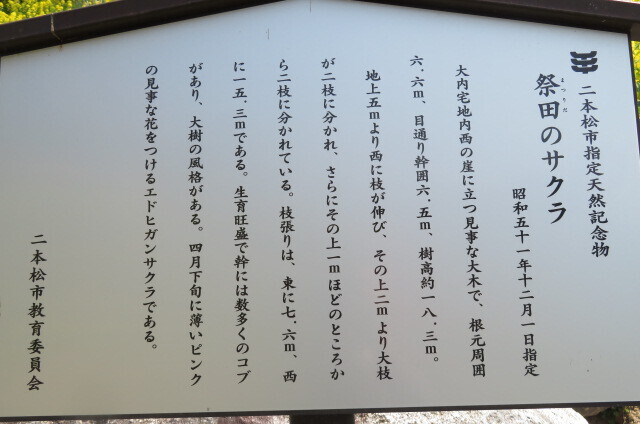 二本松市指定天然記念物
祭田のサクラ
まつりだ
昭和五十一年十二月一日指定
大内宅地内西の崖に立つ見事な大木で、根元周囲
六.六m、目通り幹囲六.五m、樹高約一八.三m。
地上五mより西に枝が伸び、その上二mより大枝
が二枝に分かれ、さらにその上一mほどのところか
ら二枝に分かれている。枝張りは、東に七.六m、西
に一五.三mである。生育旺盛で幹には数多くのコブ
があり、大樹の風格がある。四月下旬に薄いピンク
の見事な花をつけるエドヒガンサクラである。
二本松市教育委員会